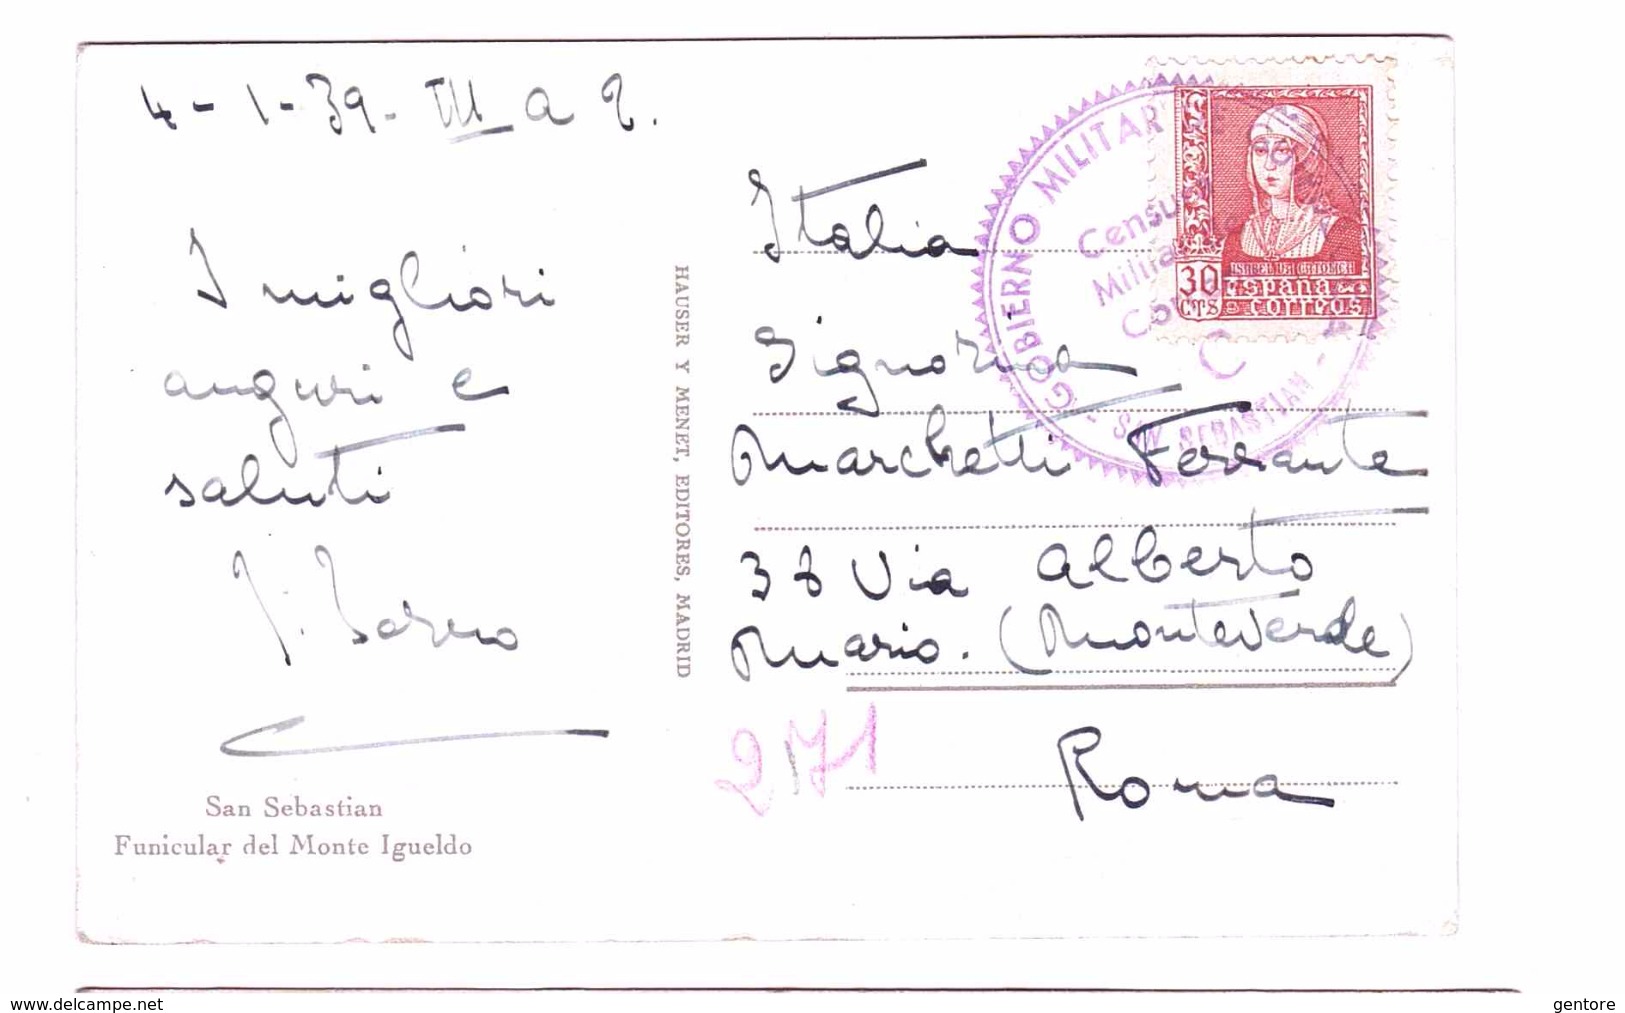 4-1-39. III a 2.
I migliori
auguri e
saluti
San Sebastian
Funicular del Monte Igueldo
HAUSER Y MENET, EDITORES, MADRID
GOBIERNO MILITAR
Censu
Milita
Co
C
- SAN SEBASTIAN -
ISABEL LA CATOLICA
30 CTS
España
correos
Italia
Signorina
Marchetti Ferrante
Via Alberto
Mario. (Monteverde)
271
Roma
www.delcampe.net
gentore